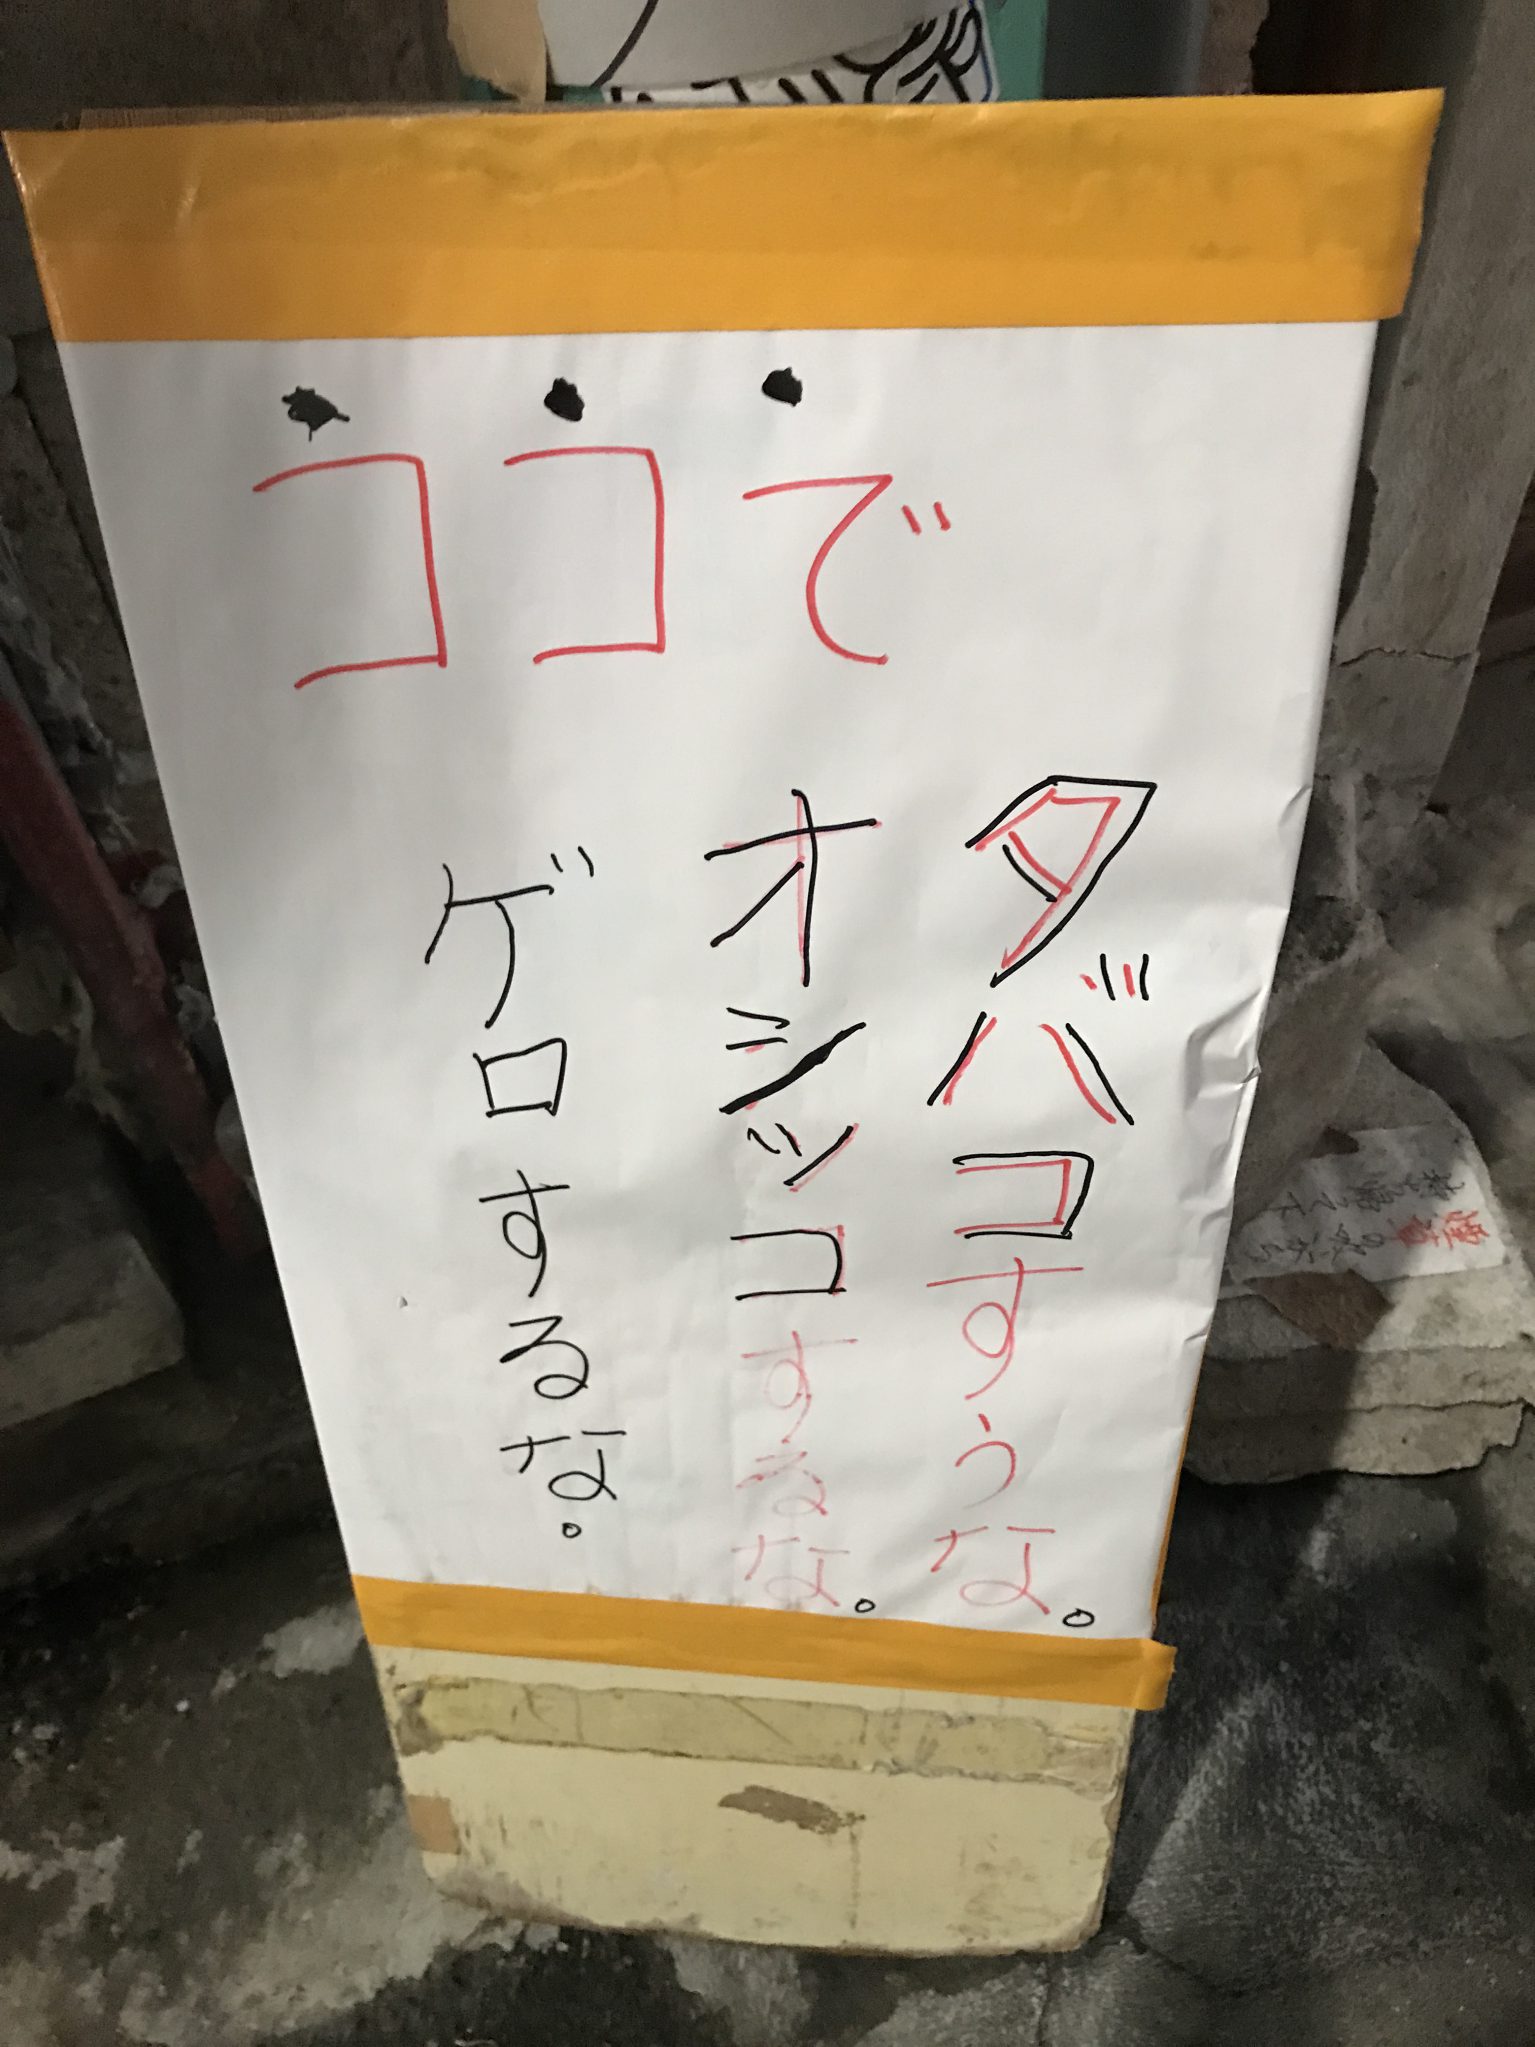 ココで
タバコすうな。
オシッコするな。
ゲロするな。